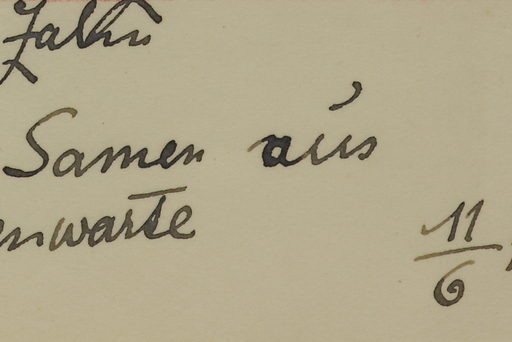 Zahn
Samen aus
enwarte
11
6